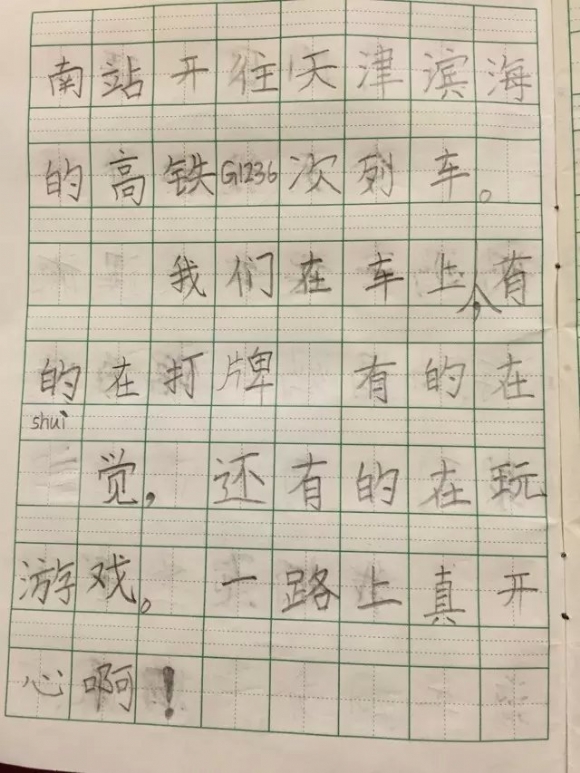 南站开往天津滨海
的高铁G1236次列车。
我们在车上,有
的在打牌 有的在
shui
觉,还有的在玩
游戏。一路上真开
心啊!